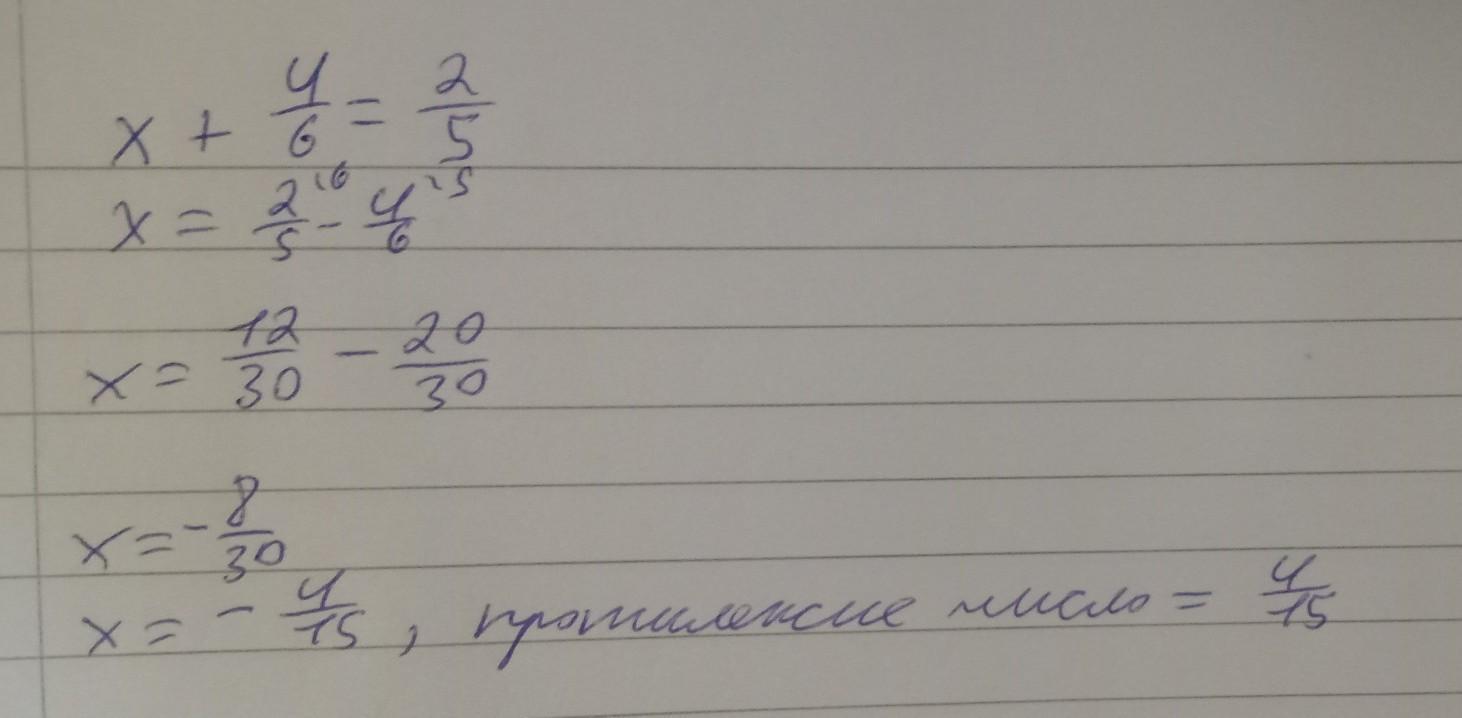 x + 4/6 = 2/5
x = 2/5 ·6 - 4/6 ·5
x = 12/30 - 20/30
x = - 8/30
x = - 4/15, протилежне число = 4/15